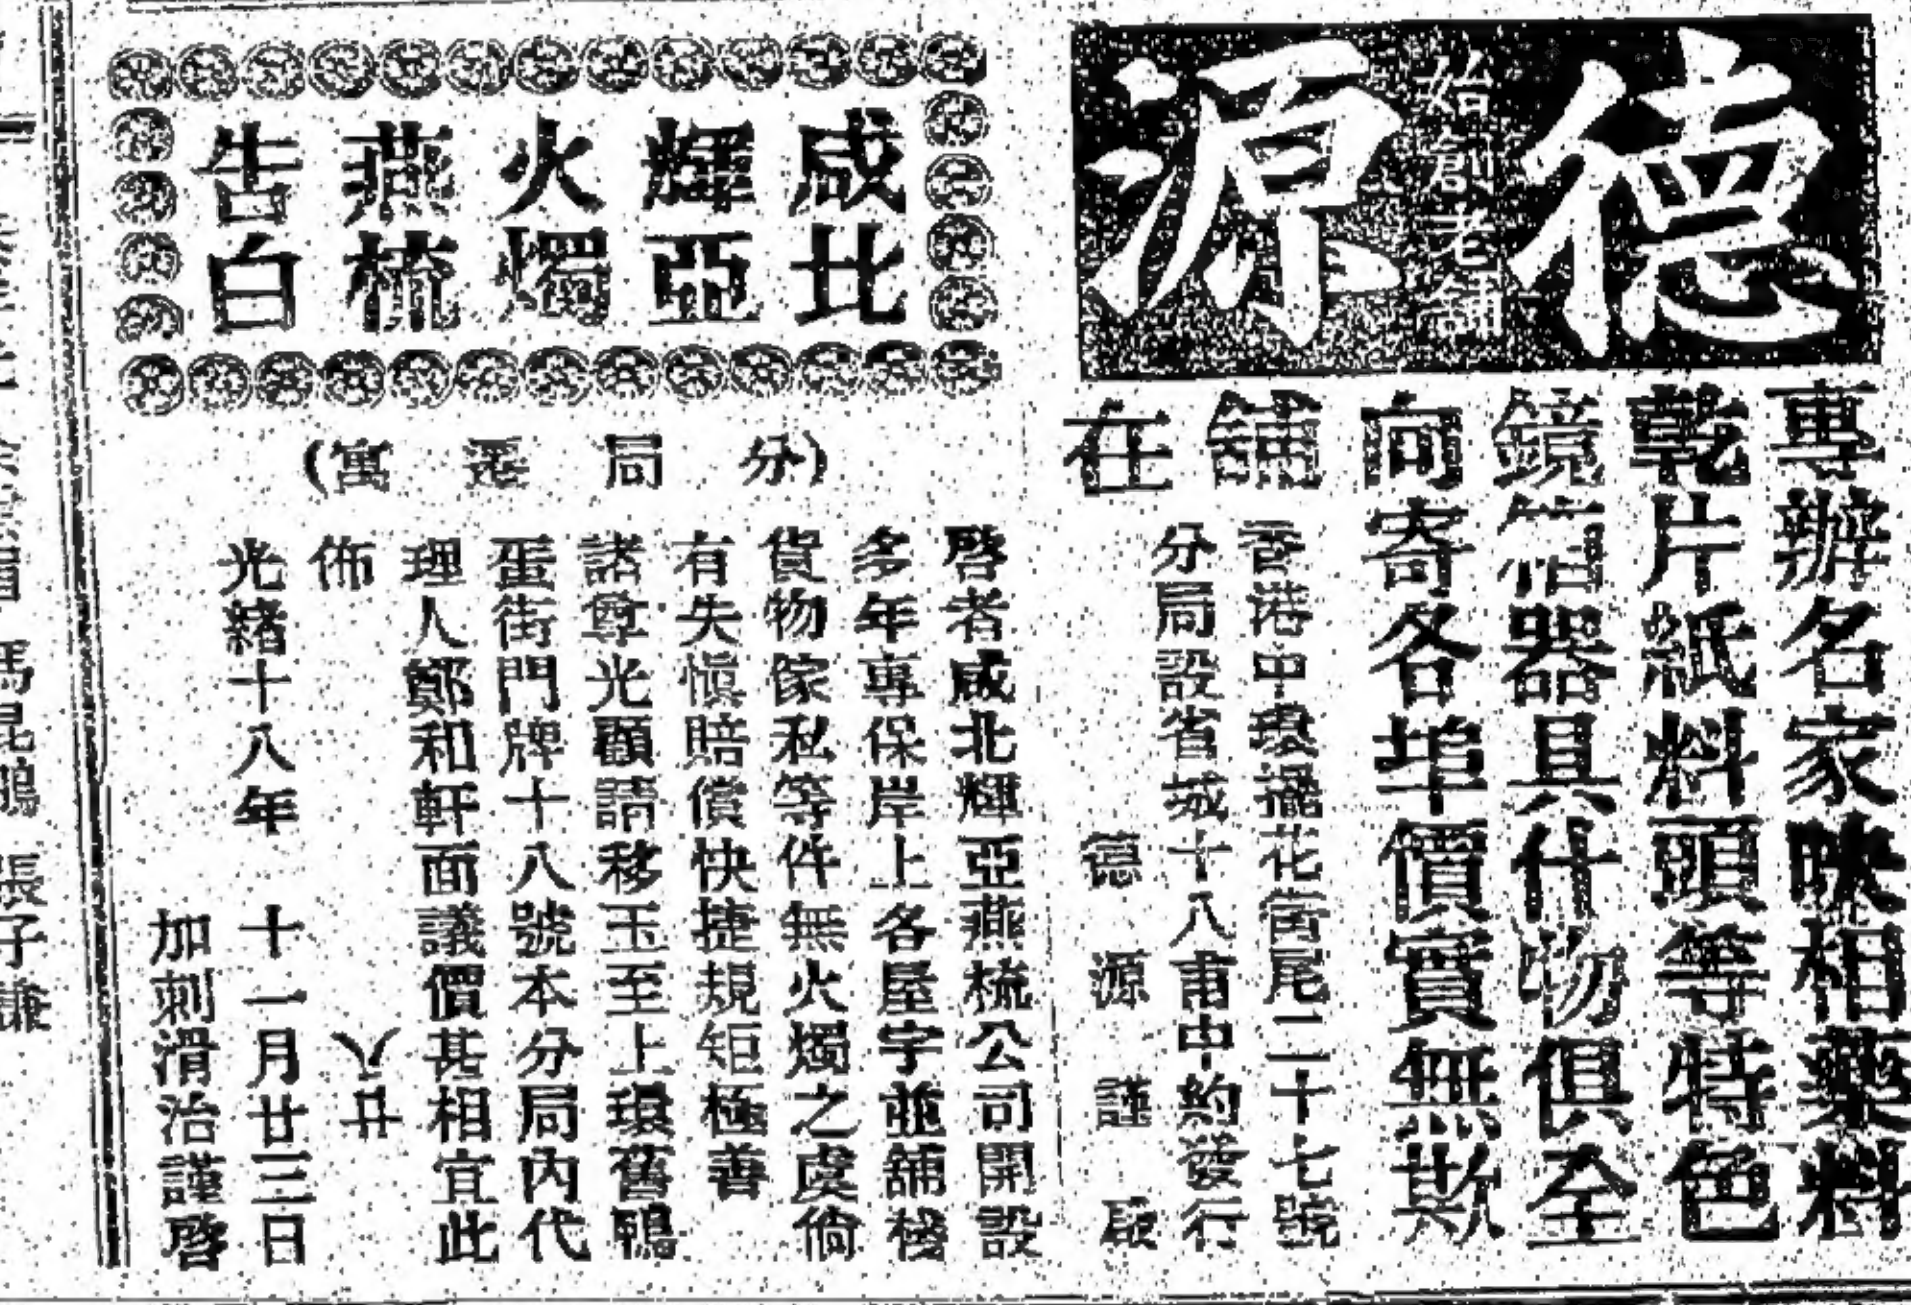 德源
始創老舖
專辦名家映相藥料
乾片紙料頭等特色
鏡箱器具什物俱全
向寄各埠價實無欺
舖在
香港中環擺花街尾二十七號
分局設省城十八甫中約發行
德源謹啟
咸北
輝亞
火燭
燕梳
告白
(分局遷寓)
啓者咸北輝亞燕梳公司開設
多年專保岸上各屋宇並舖棧
貨物傢私等件無火燭之虞倘
有失慎賠償快捷規矩極善
諸尊光顧請移玉至上環舊鴨
蛋街門牌十八號本分局內代
理人鄭和軒面議價甚相宜此
佈 八廿
光緒十八年 十一月廿三日
加刺滑治謹啓
馮昆鵬 張子謙